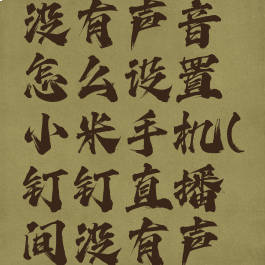 没有声音
怎么设置
小米手机(
钉钉直播
间没有声